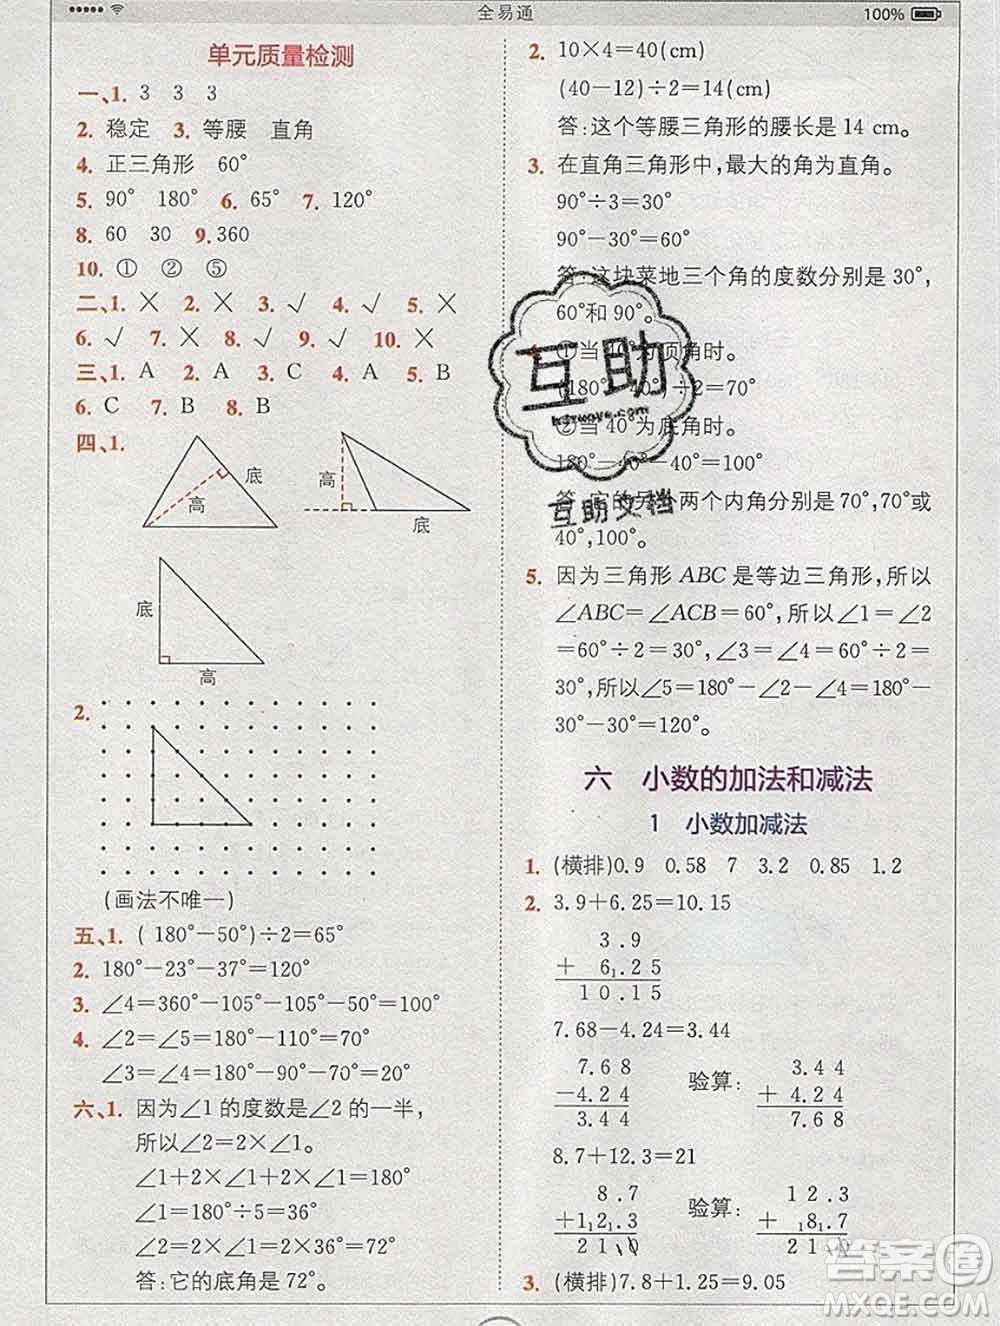 全易通
100%
单元质量检测
一、1. 3 3 3
2. 稳定 3. 等腰 直角
4. 正三角形 60°
5. 90° 180° 6. 65° 7. 120°
8. 60 30 9. 360
10. ① ② ⑤
二、1. × 2. × 3. √ 4. √ 5. ×
6. √ 7. × 8. √ 9. √ 10. ×
三、1. A 2. A 3. B 4. A 5. B
6. C 7. B 8. B
四、1.
底
高
高
底
底
高
2.
(画法不唯一)
五、1. (180°－50°)÷2=65°
2. 180°－23°－37°=120°
3. ∠4=360°－105°－105°－50°=100°
4. ∠2=∠5=180°－110°=70°
∠3=∠6=180°－90°－70°=20°
六、1. 因为∠1的度数是∠2的一半,
所以∠2=2×∠1。
∠1+2×∠1+2×∠1=180°
∠1=180°÷5=36°
∠2=2×∠1=2×36°=72°
答:它的底角是72°。
2. 10×4=40(cm)
(40－12)÷2=14(cm)
答:这个等腰三角形的腰长是14 cm。
3. 在直角三角形中,最大的角为直角。
90°÷3=30°
90°－30°=60°
答:这块菜地三个角的度数分别是30°,
60°和90°。
①当40°为顶角时。
(180°－40°)÷2=70°
②当40°为底角时。
180°－40°－40°=100°
答:它的另外两个内角分别是70°,70°或
40°,100°。
5. 因为三角形ABC是等边三角形,所以
∠ABC=∠ACB=60°,所以∠1=∠2
=60°÷2=30°,∠3=∠4=60°÷2=
30°,所以∠5=180°－∠2－∠4=180°－
30°－30°=120°。
六 小数的加法和减法
1 小数加减法
1. (横排)0.9 0.58 7 3.2 0.85 1.2
2. 3.9+6.25=10.15
3.9
+ 6₁.25
10.15
7.68－4.24=3.44
7.68
－4.24
3.44
验算:
3.44
+ 4.24
7.68
8.7+12.3=21
8.7
+1₁2₁.3
21.0
验算:
12.3
+ ₁8₁.7
21.0
3. (横排)7.8+1.25=9.05
互助
互助文档
答案圈
MXQE.COM